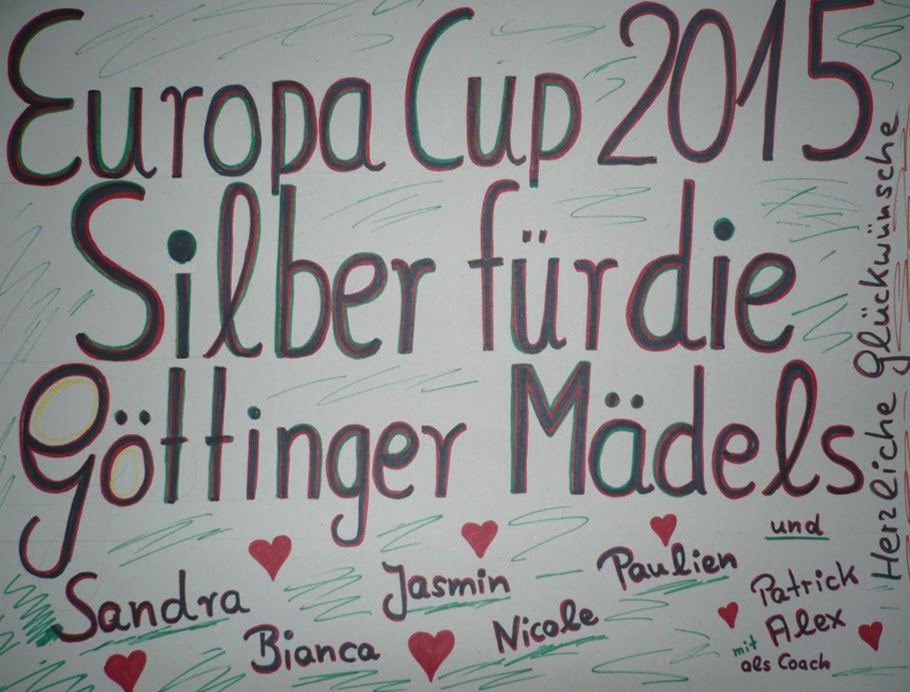 Europa Cup 2015
Silber für die
Göttinger Mädels
Herzliche Glückwünsche
Sandra Jasmin Paulien
Bianca Nicole
und
Patrick
mit Alex
als Coach